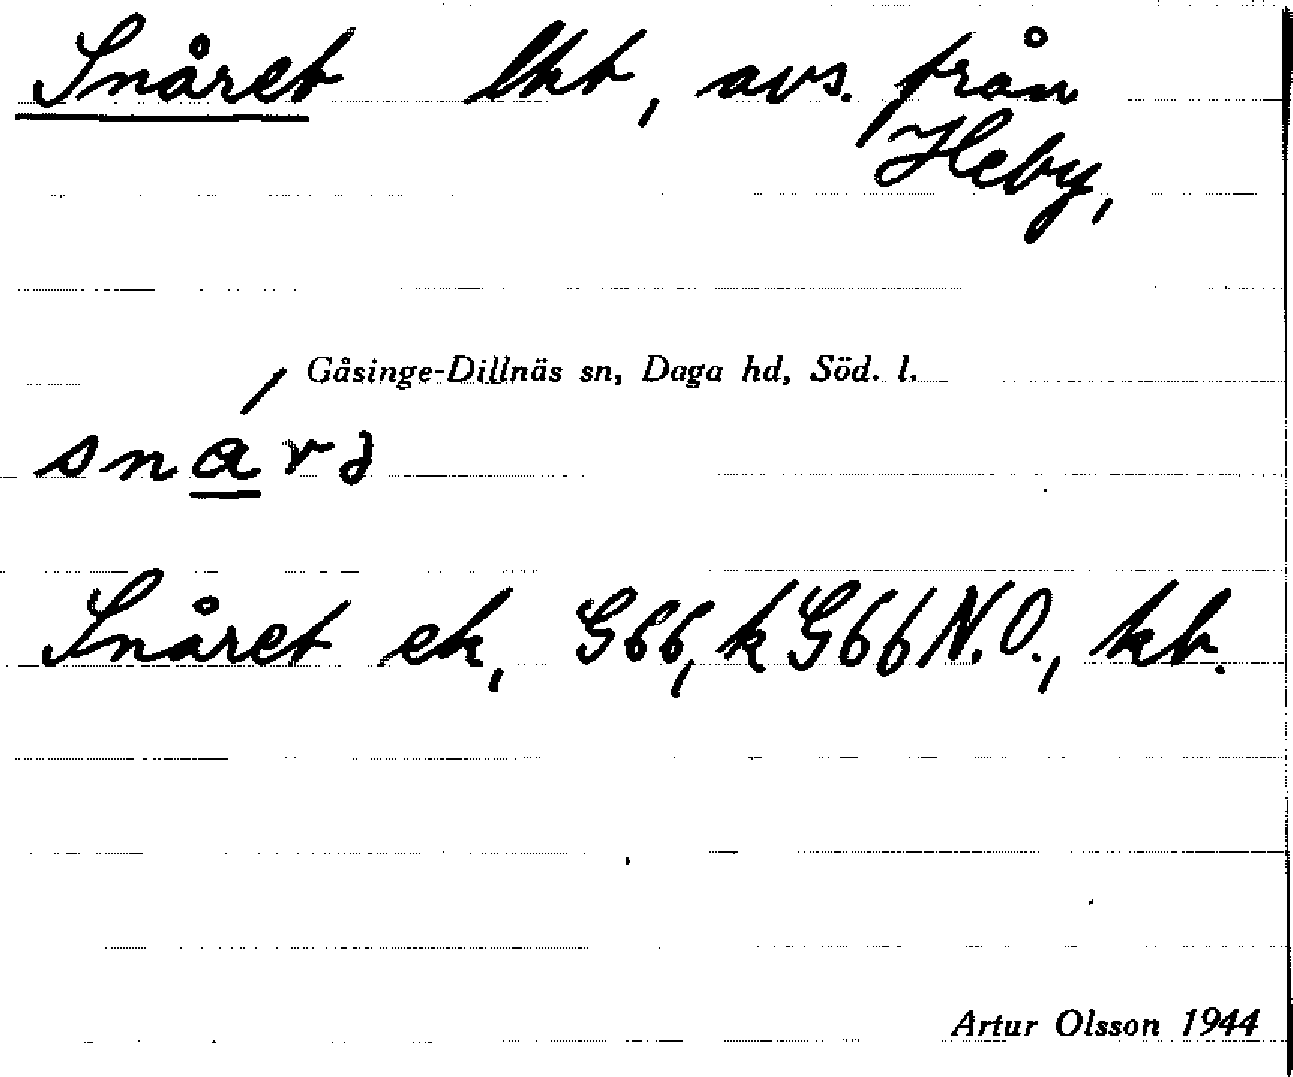 Snåret lht, avs. från
Heby,
Gåsinge-Dillnäs sn, Daga hd, Söd. l.
Snåret ek, G66, k G66 N.O., kb.
Artur Olsson 1944